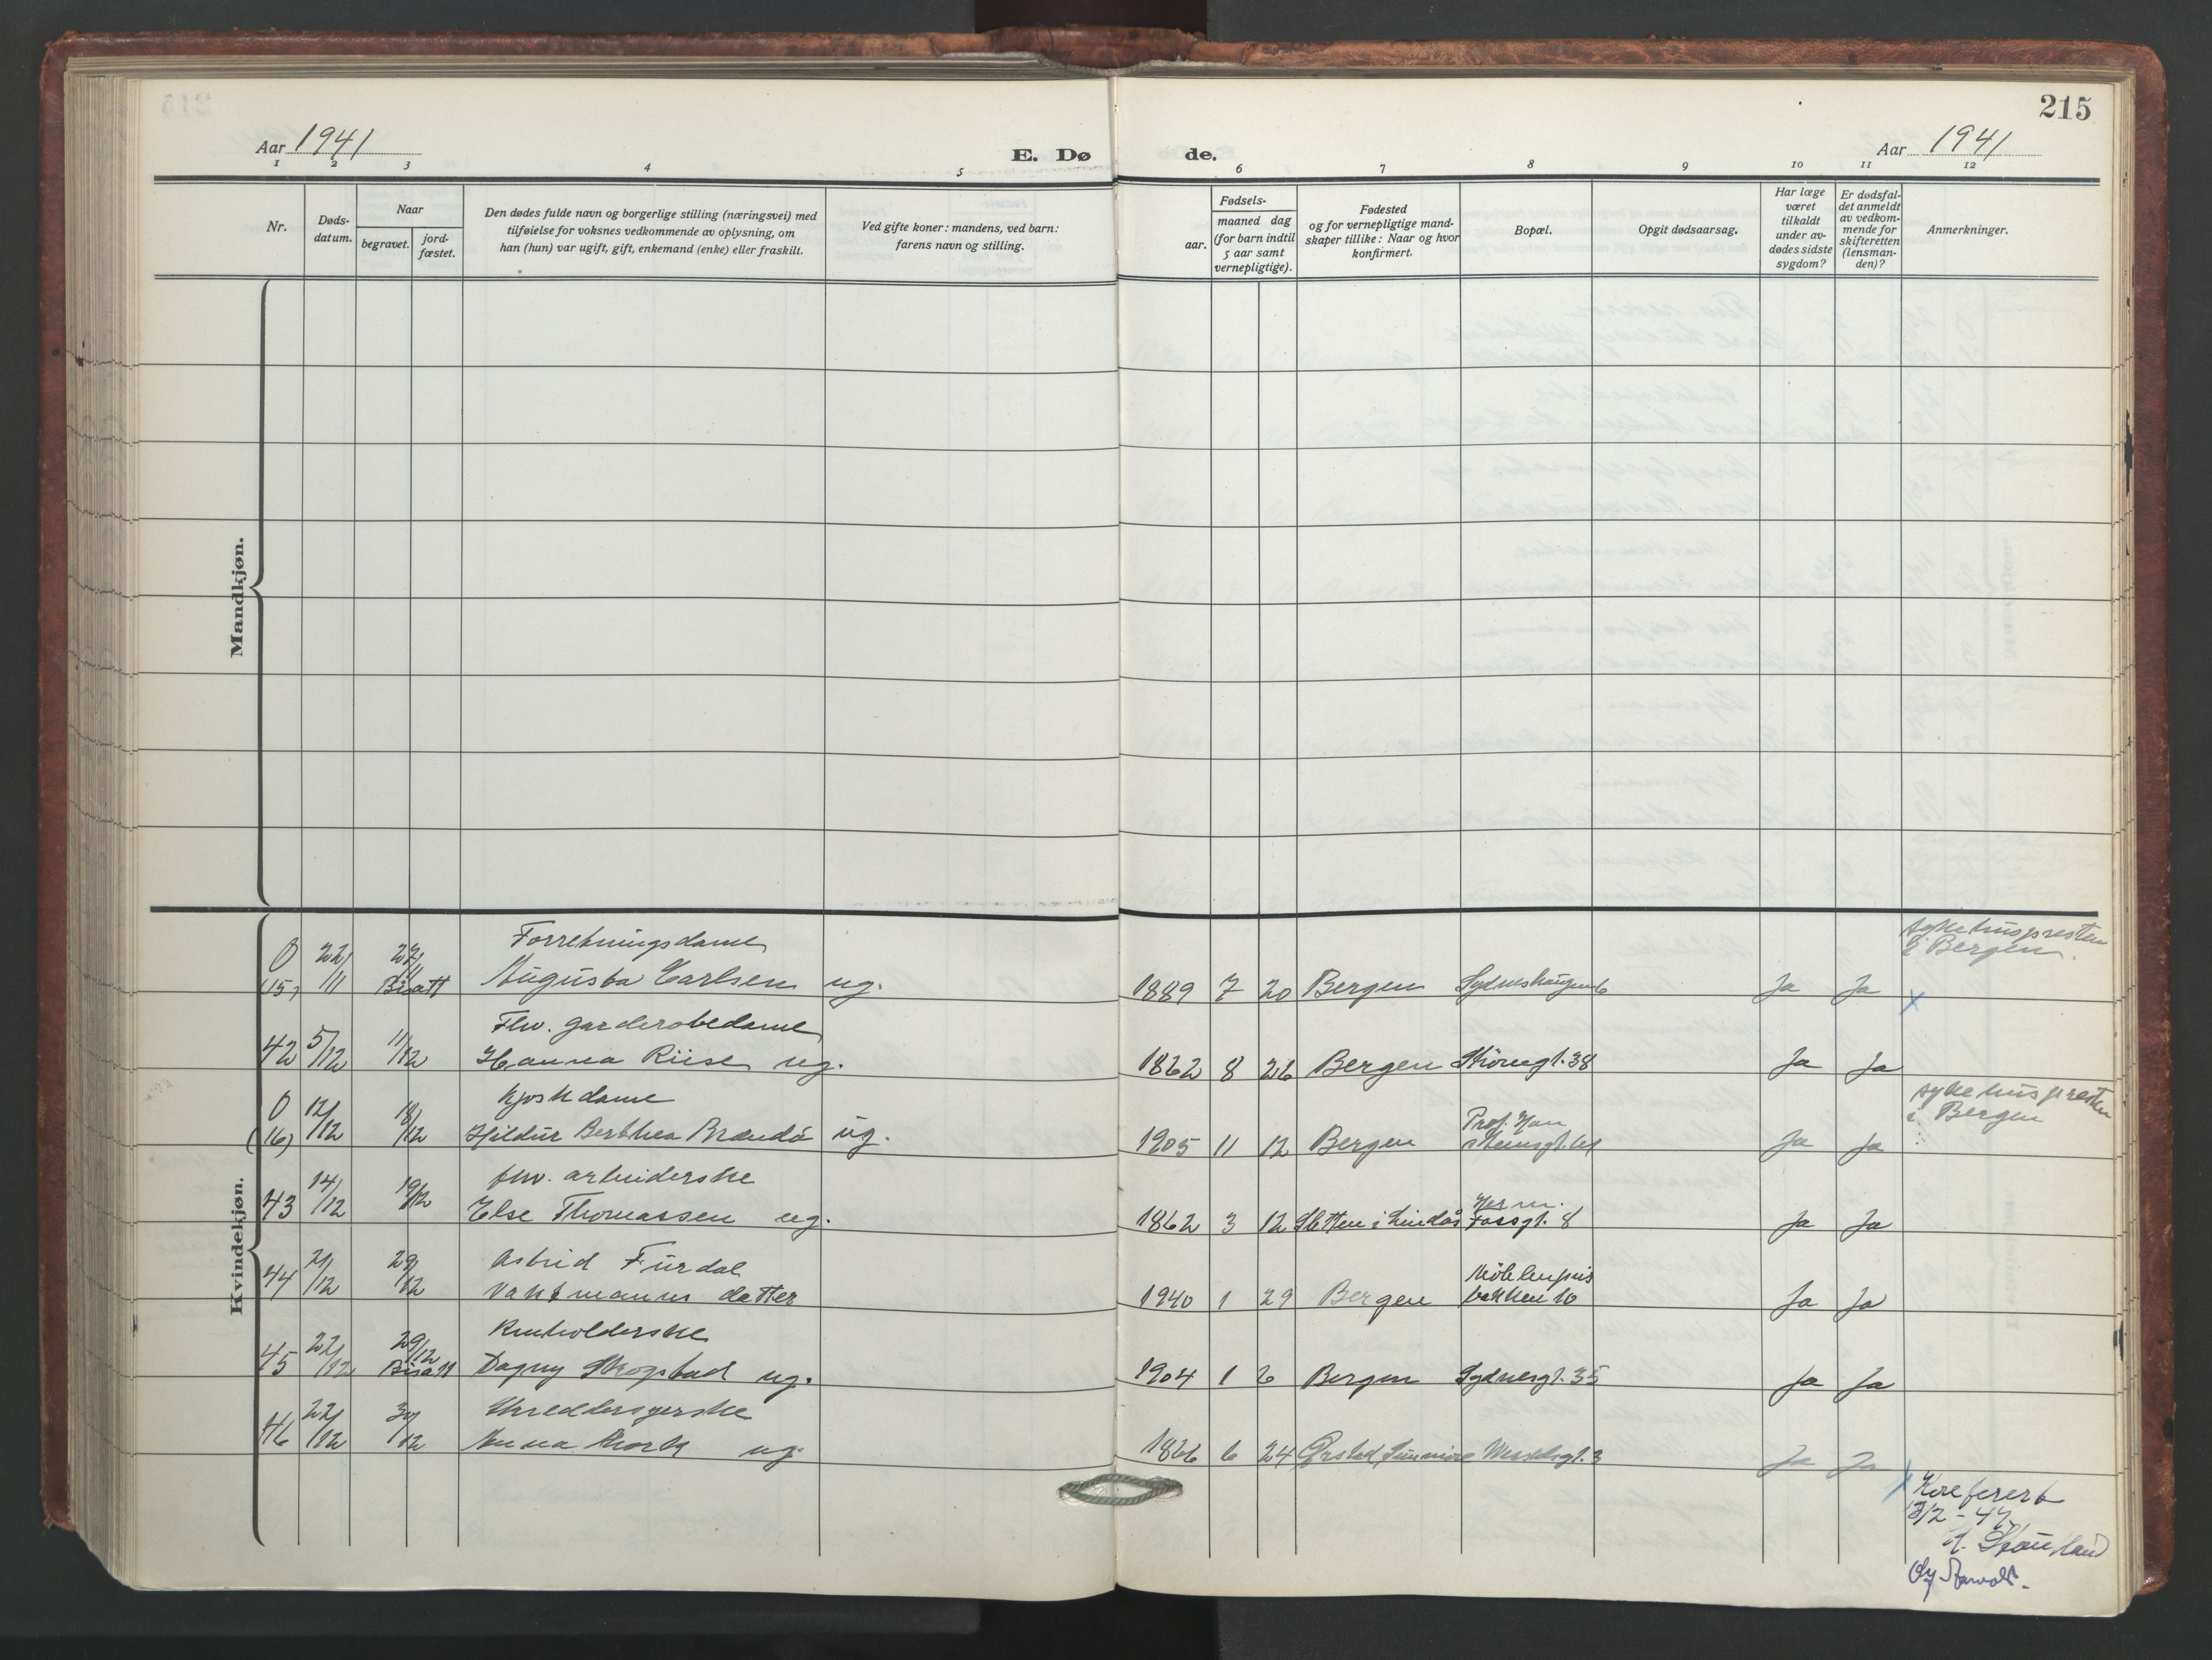 215
Aar 1941
E. Dø
de.
Aar 1941
1 2 3 4 5 6 7 8 9 10 11 12
Nr.
Døds-
datum.
Naar
begravet.
jord-
fæstet.
Den dødes fulde navn og borgerlige stilling (næringsvei) med
tilføielse for voksnes vedkommende av oplysning, om
han (hun) var ugift, gift, enkemand (enke) eller fraskilt.
Ved gifte koner: mandens, ved barn:
farens navn og stilling.
Fødsels-
aar.
maaned dag
(for barn indtil
5 aar samt
vernepligtige).
Fødested
og for vernepligtige mand-
skaper tillike: Naar og hvor
konfirmert.
Bopæl.
Opgit dødsaarsag.
Har læge
været
tilkaldt
under av-
dødes sidste
sygdom?
Er dødsfal-
det anmeldt
av vedkom-
mende for
skifteretten
(lensman-
den)?
Anmerkninger.
Mandkjøn.
Kvindekjøn.
0 22/11 Forretningsdame sykehuspresten
i Bergen.
(15) Bisatt Augusta Carlsen ug. 1889 7 20 Bergen Ja Ja
Fhv. garderobedame
42 5/12 11/12 Hanna Riise ug. 1862 8 26 Bergen 38 Ja Ja
0 12/12 18/12 Kjoskdame sykehuspresten
i Bergen
(16) Hildur Berthea Brændø ug. 1905 11 12 Bergen Prof. Han
steensgt. Ja Ja
fhv. arbeiderske
43 14/12 19/12 Else Thomassen ug. 1862 3 12 Sletten i Lindås Herm.
Fossgt. 8 Ja Ja
Astrid Furdal
44 21/12 29/12 Vaktmanns datter 1940 1 29 Bergen Møhlenpris
bakken 10 Ja Ja
Renholderske
45 22/12 29/12 Bisatt Dagny Skogstad ug. 1904 1 6 Bergen Sydnesgt. 35 Ja Ja
Skreddersyerske
46 22/12 30/12 Anna ug. 1866 6 24 Ørsted Sunnmøre Wesselsgt. 3 Ja Ja
Konferert